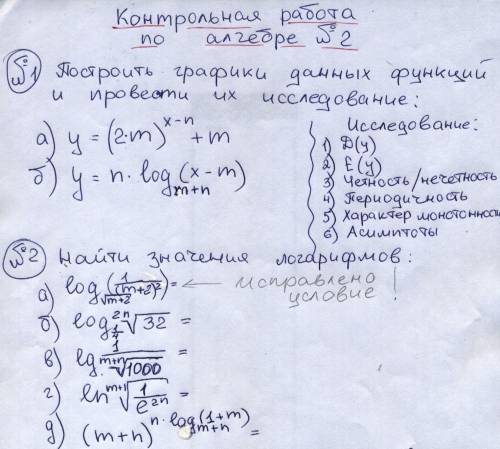 Контрольная работа
по алгебре №2
№1 Построить графики данных функций
и провести их исследование:
а) y = (2·m)^(x-n) + m
б) y = n · log_(m+n) (x-m)
Исследование:
1) D(y)
2) E(y)
3) Четность/нечетность
4) Периодичность
5) Характер монотонности
6) Асимптоты
№2 Найти значения логарифмов:
а) log_(√(m+2)) (1/(m+2)²) = ← исправлено
условие!
б) log_(1/4) ²ⁿ√32 =
в) lg 1/ᵐ⁺ⁿ√1000 =
г) ln ᵐ⁺¹√(1/e²ⁿ) =
д) (m+n)^(n·log_(m+n) (1+m)) =